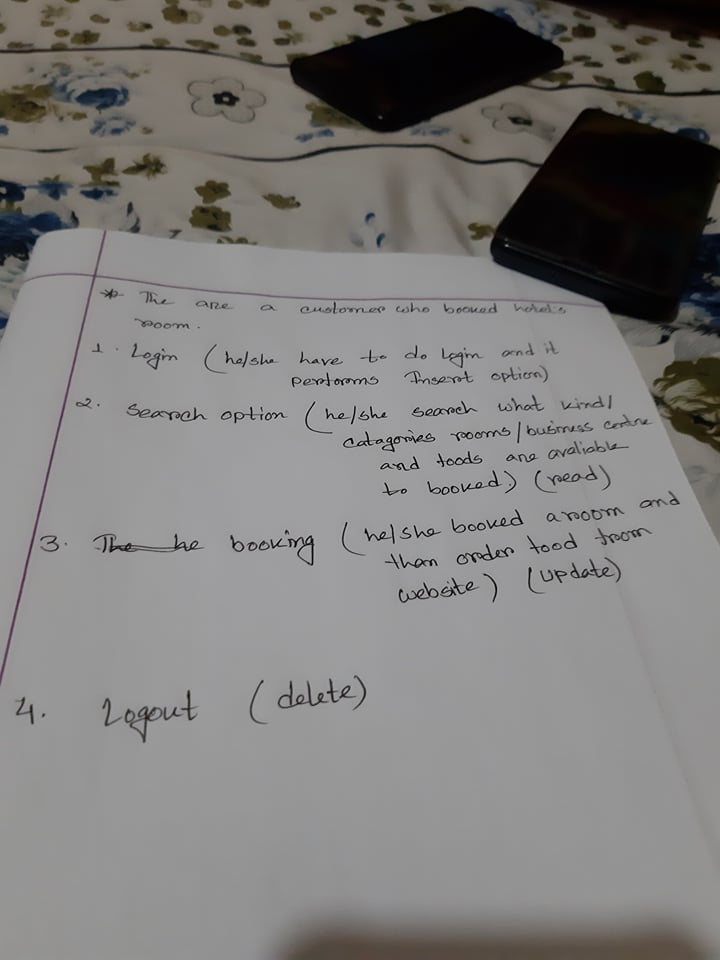 * The are a customer who booked hotel's
room.
1. Login (he/she have to do login and it
performs Insert option)
2. Search option (he/she search what kind/
catagories rooms/business centre
and foods are avaliable
to booked) (read)
3. The he booking (he/she booked a room and
than order food from
website) (update)
4. Logout (delete)